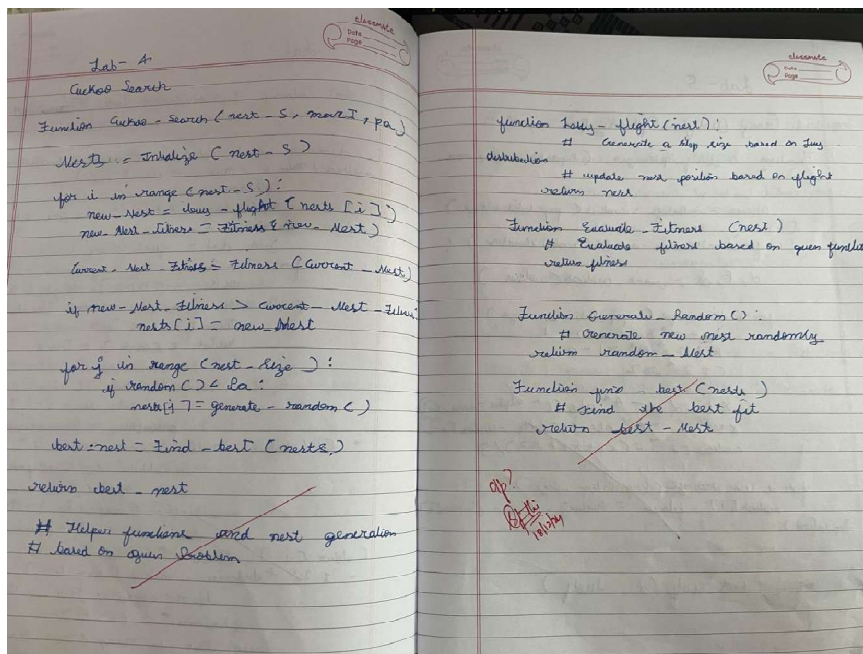 classmate
Date
Page
Lab- 4
Cuckoo Search
Function Cuckoo - search (nest - S, maxI, pa)
Nests = Initalize (nest - S)
for i in range (nest - S) :
new_Nest = levy - flight (nests [i])
new_Nest - Fitness = Fitness (new_Nest)
Current - Nest - Fitness = Fitness (Current - Nest)
if new - Nest - Fitness > Current - Nest - Fitness:
nests [i] = new_Nest
for j in range (nest - Size) :
if random () < Pa :
nests[j] = generate - random ()
best - nest = Find - best (nests)
return best - nest
# Helper functions and nest generation
# based on given Problem
classmate
Date
Page
function Levy - flight (nest) :
# Generate a step size based on levy
distribution
# update nest position based on flight
return nest
Function Evaluate - Fitness (nest)
# Evaluate fitness based on given function
return fitness
Function Generate - Random () :
# Generate new nest randomly
return random - Nest
Function find best (nests)
# Find the best fit
return best - Nest
o/p?
18/12/24